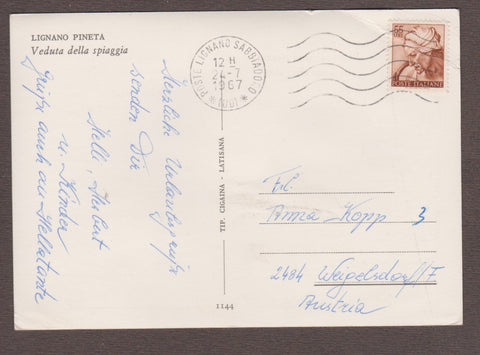 LIGNANO PINETA
Veduta della spiaggia
Herzliche Urlaubsgrüße
senden Dir
Helli, Herbert
u. Kinder
Grüße auch an Hellatante
TIP. CIGAINA - LATISANA
1144
POSTE LIGNANO SABBIADORO
12 H
24-7
1967
(UD)
POSTE ITALIANE
Fr.
Anna Kopp 3
2484 Weigelsdorf/F
Austria